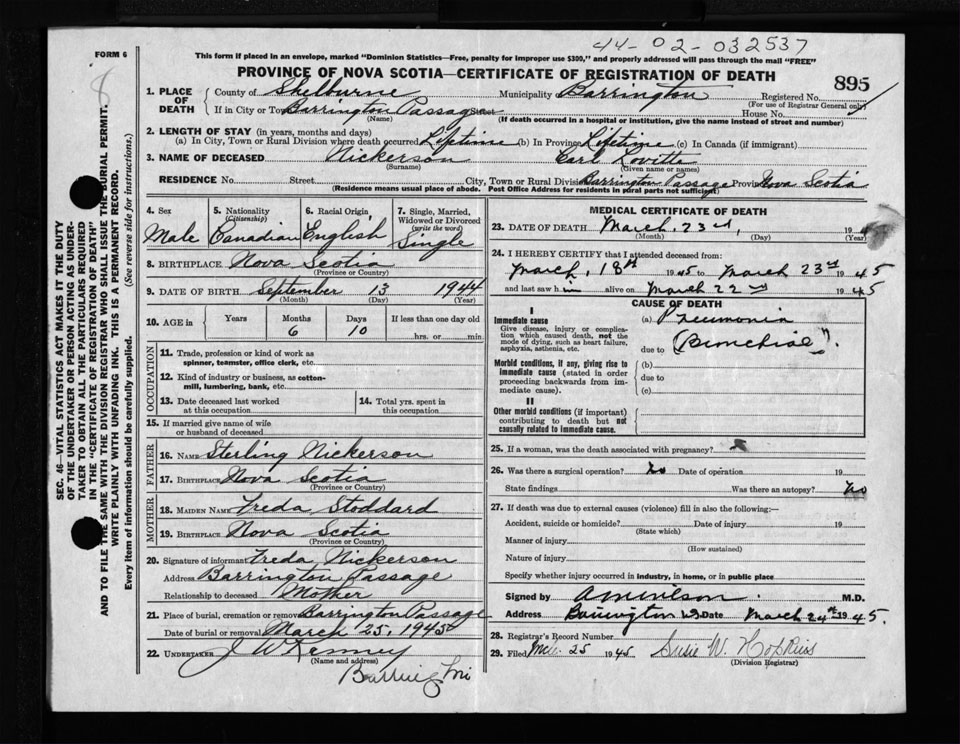 44-02-032537
FORM 6
This form if placed in an envelope, marked "Dominion Statistics—Free, penalty for improper use $300," and properly addressed will pass through the mail "FREE"
PROVINCE OF NOVA SCOTIA—CERTIFICATE OF REGISTRATION OF DEATH
895
8
1. PLACE OF DEATH
County of Shelburne Municipality Barrington Registered No.
(For use of Registrar General only)
If in City or Town Barrington Passage House No.
(Name) (If death occurred in a hospital or institution, give the name instead of street and number)
2. LENGTH OF STAY (in years, months and days)
(a) In City, Town or Rural Division where death occurred Lifetime (b) In Province Lifetime (c) In Canada (if immigrant)
3. NAME OF DECEASED Nickerson Carl Lovitte
(Surname) (Given name or names)
RESIDENCE No. Street City, Town or Rural Division Barrington Passage Province Nova Scotia
(Residence means usual place of abode. Post Office Address for residents in rural parts not sufficient)
4. Sex Male
5. Nationality (Citizenship) Canadian
6. Racial Origin English
7. Single, Married, Widowed or Divorced (write the word) Single
8. BIRTHPLACE Nova Scotia
(Province or Country)
9. DATE OF BIRTH September 13 1944
(Month) (Day) (Year)
10. AGE in Years Months Days If less than one day old
6 10 hrs. or min.
OCCUPATION
11. Trade, profession or kind of work as
spinner, teamster, office clerk, etc.
12. Kind of industry or business, as cotton-
mill, lumbering, bank, etc.
13. Date deceased last worked
at this occupation
14. Total yrs. spent in
this occupation
15. If married give name of wife
or husband of deceased
FATHER
16. NAME Sterling Nickerson
17. BIRTHPLACE Nova Scotia
(Province or Country)
MOTHER
18. MAIDEN NAME Freda Stoddard
19. BIRTHPLACE Nova Scotia
(Province or Country)
20. Signature of informant Freda Nickerson
Address Barrington Passage
Relationship to deceased Mother
21. Place of burial, cremation or removal Barrington Passage
Date of burial or removal March 25, 1945
22. UNDERTAKER J W Kenney
(Name and address)
MEDICAL CERTIFICATE OF DEATH
23. DATE OF DEATH March, 23rd, 19
(Month) (Day) (Year)
24. I HEREBY CERTIFY that I attended deceased from:
March, 18th 1945 to March 23rd 1945
and last saw him alive on March 22nd 1945
CAUSE OF DEATH
I
Immediate cause
Give disease, injury or complica-
tion which caused death, not the
mode of dying, such as heart failure,
asphyxia, asthenia, etc.
(a) Pneumonia
due to (Bronchial).
Morbid conditions, if any, giving rise to
immediate cause (stated in order
proceeding backwards from im-
mediate cause).
(b)
due to
(c)
II
Other morbid conditions (if important)
contributing to death but not
causally related to immediate cause.
25. If a woman, was the death associated with pregnancy?
26. Was there a surgical operation? No Date of operation 19
State findings Was there an autopsy? No
27. If death was due to external causes (violence) fill in also the following:—
Accident, suicide or homicide? Date of injury 19
(State which)
Manner of injury
(How sustained)
Nature of injury
Specify whether injury occurred in industry, in home, or in public place
Signed by A M Wilson M.D.
Address Barrington NS Date March 24th 1945.
28. Registrar's Record Number
29. Filed Mch 25 1945 Susie W. Hopkins
(Division Registrar)
SEC. 46—VITAL STATISTICS ACT MAKES IT THE DUTY
OF THE UNDERTAKER OR PERSON ACTING AS UNDER-
TAKER TO OBTAIN ALL THE PARTICULARS REQUIRED
IN THE "CERTIFICATE OF REGISTRATION OF DEATH"
AND TO FILE THE SAME WITH THE DIVISION REGISTRAR WHO SHALL ISSUE THE BURIAL PERMIT.
WRITE PLAINLY WITH UNFADING INK. THIS IS A PERMANENT RECORD.
Every item of information should be carefully supplied. (See reverse side for instructions.)